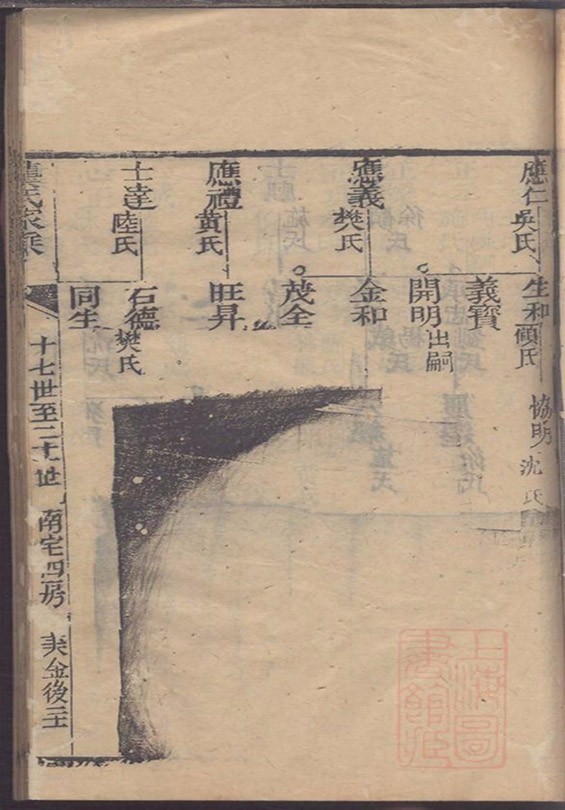 應仁 吳氏
生和 顧氏
協明 沈氏
義寶
開明 出嗣
應義 樊氏
金和
茂全
應禮 黃氏
旺昇
士達 陸氏
石德 樊氏
同生
氏家乘
十七世至二十一世 南宅四房
金後二
上海圖書館